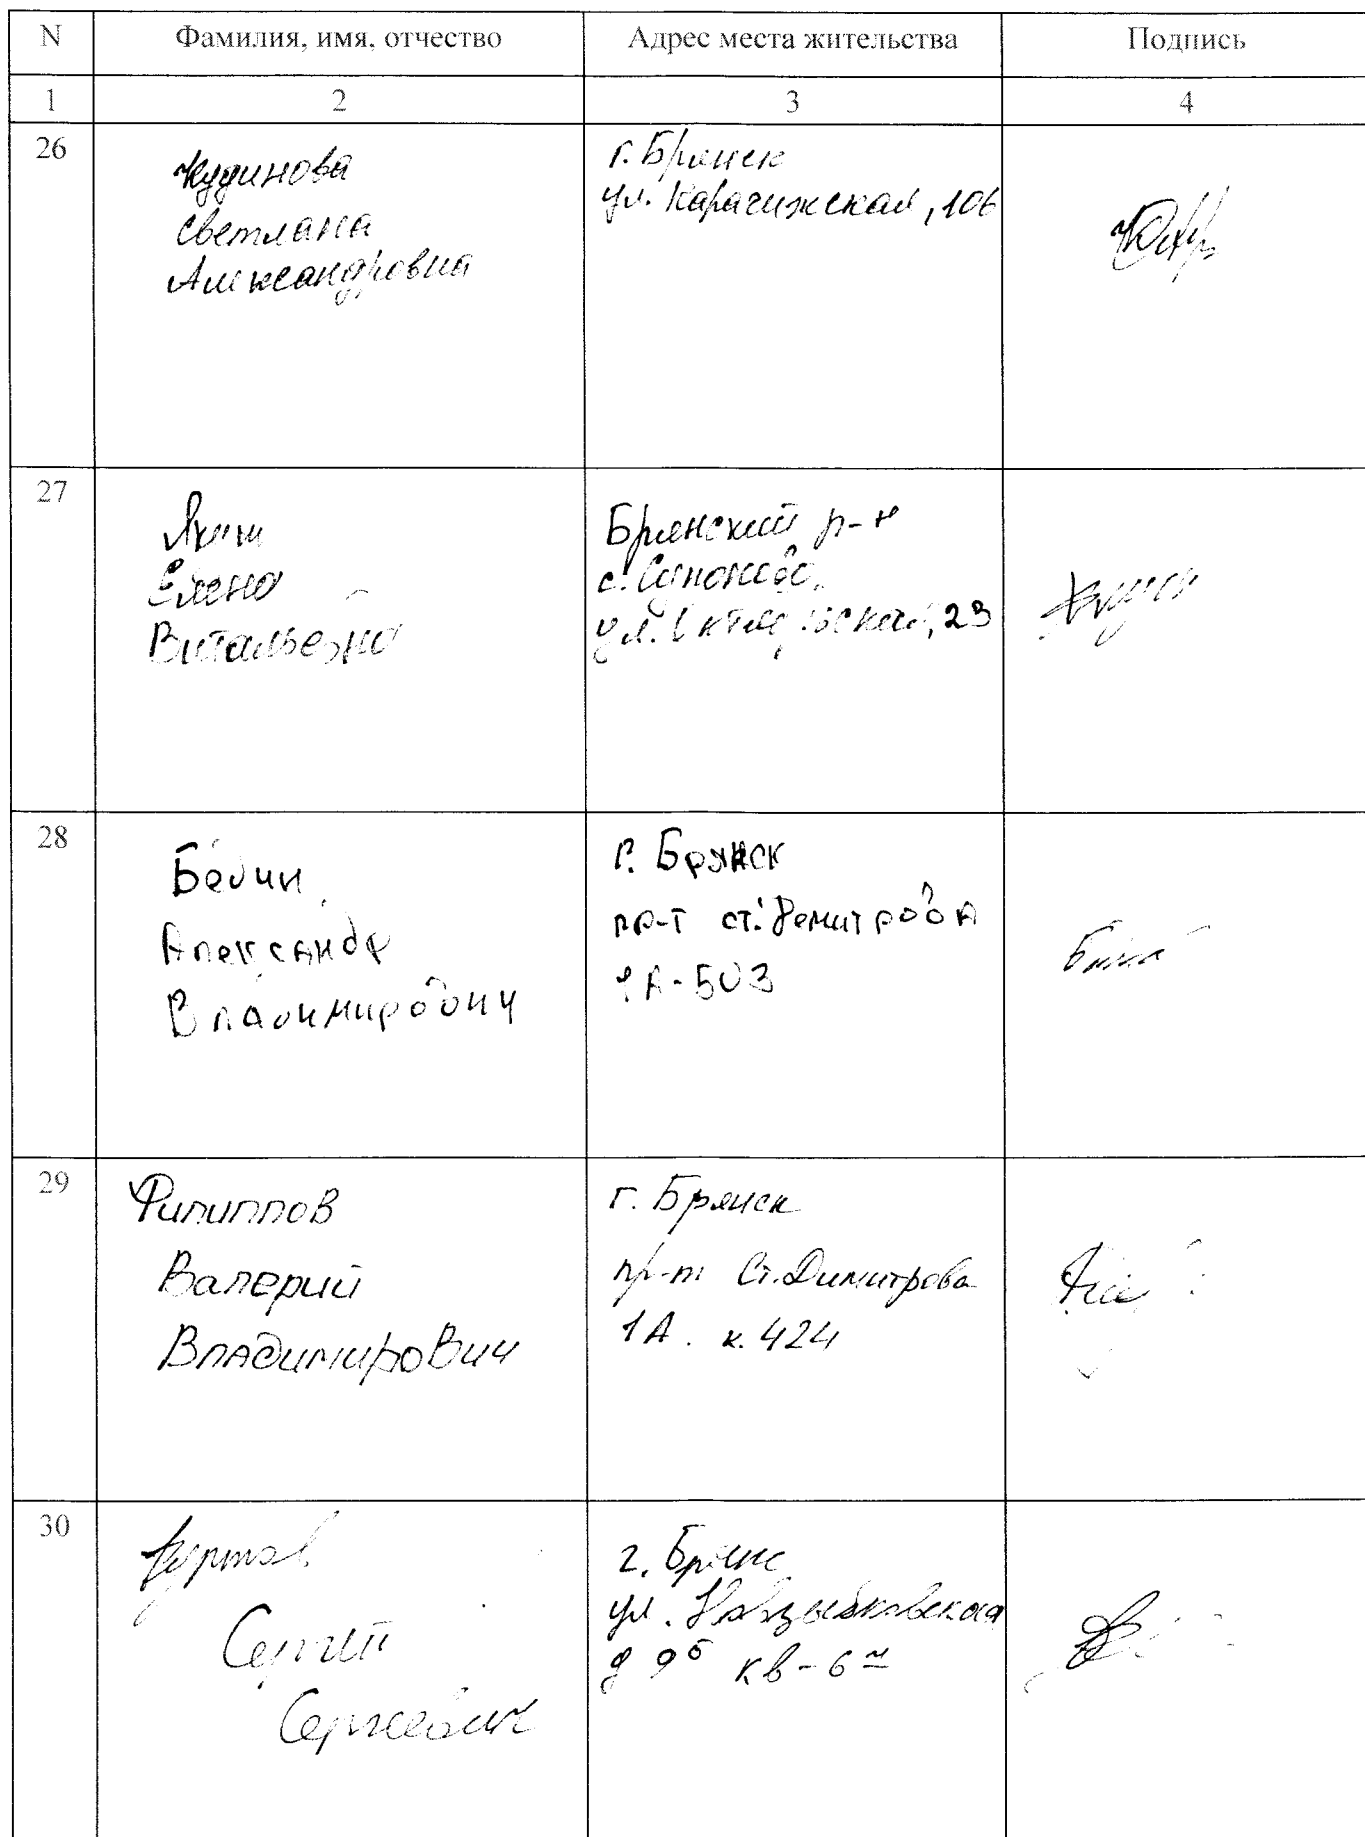 N Фамилия, имя, отчество Адрес места жительства Подпись
1 2 3 4
26
Кудинова
Светлана
Александровна
г. Брянск
ул. Карачижская, 106
27
Елена
Витальевна
Брянский р-н
с.
ул. 23
28
Бедин
Александр
Владимирович
г. Брянск
пр-т ст. Демитрова
1А-503
29
Филиппов
Валерий
Владимирович
г. Брянск
пр-т Ст. Димитрова
1А. к. 424
30
Сергей
Сергеевич
г. Брянск
ул. Новозыбковская
д 9б кв-6